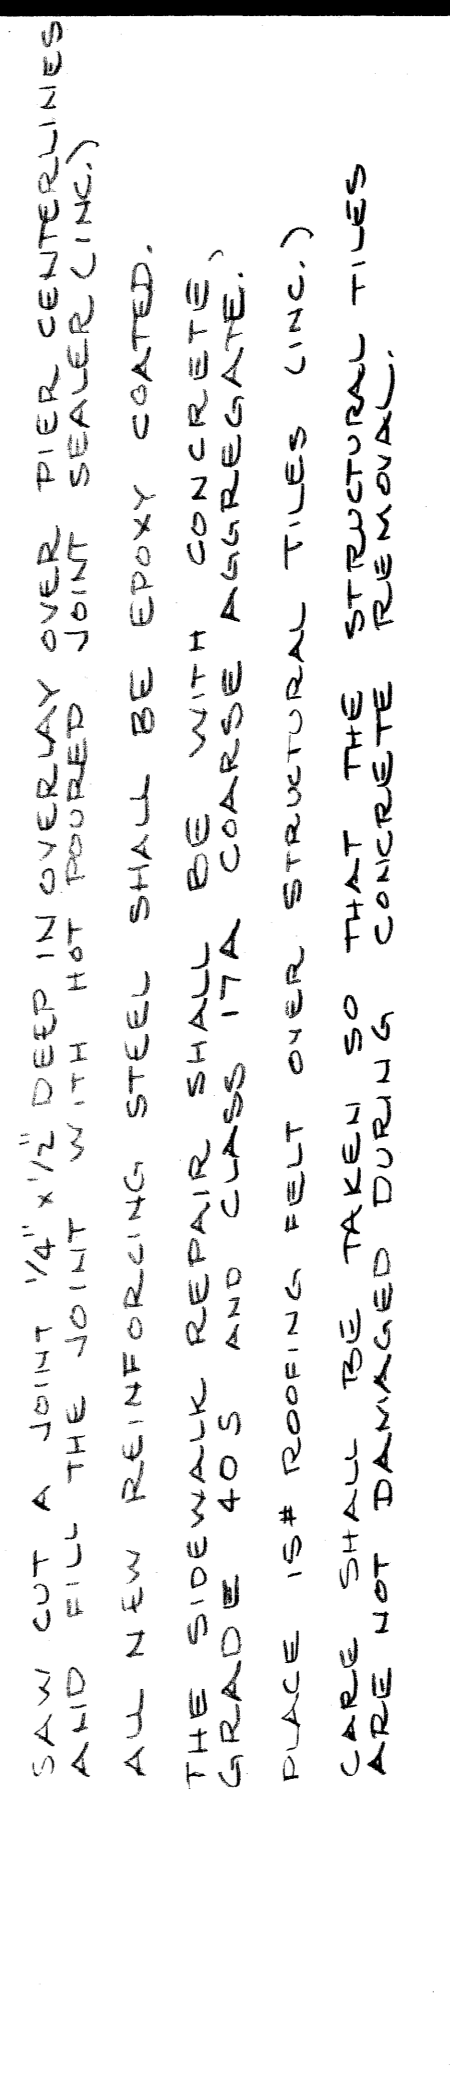 SAW CUT A JOINT 1/4" x 1/2" DEEP IN OVERLAY OVER PIER CENTERLINES
AND FILL THE JOINT WITH HOT POURED JOINT SEALER (INC.)
ALL NEW REINFORCING STEEL SHALL BE EPOXY COATED.
THE SIDEWALK REPAIR SHALL BE WITH CONCRETE,
GRADE 40S AND CLASS 17A COARSE AGGREGATE.
PLACE 15# ROOFING FELT OVER STRUCTURAL TILES (INC.)
CARE SHALL BE TAKEN SO THAT THE STRUCTURAL TILES
ARE NOT DAMAGED DURING CONCRETE REMOVAL.